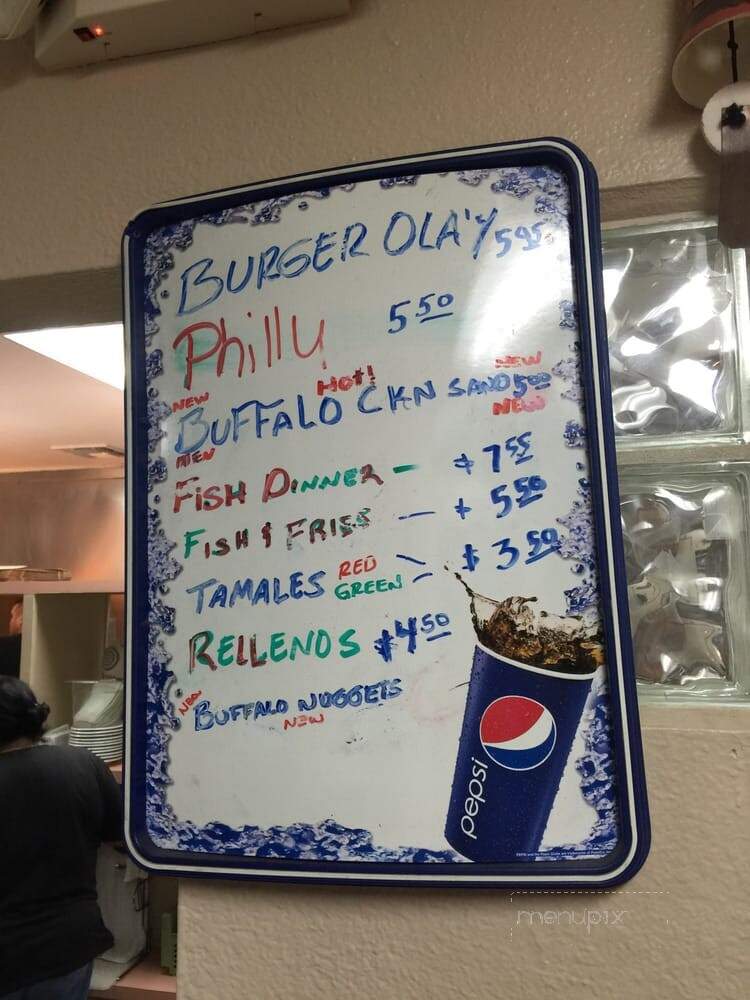 BURGER OLA'Y 5.95
Philly 5 50
NEW HOT! NEW
BUFFALO CKN SAND 5 00
NEW NEW
FISH DINNER - $7 55
FISH & FRIES - $5.50
TAMALES RED GREEN $3.50
RELLENOS $4 50
NEW BUFFALO NUGGETS
NEW
pepsi
menupix